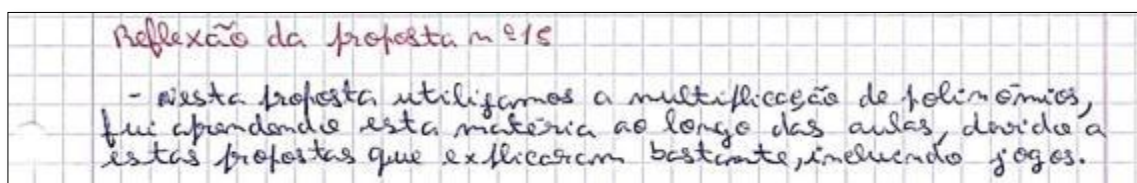 Reflexão da proposta nº15
- Nesta proposta utilizamos a multiplicação de polinómios,
fui aprendendo esta matéria ao longo das aulas, devido a
estas propostas que explicaram bastante, incluindo jogos.